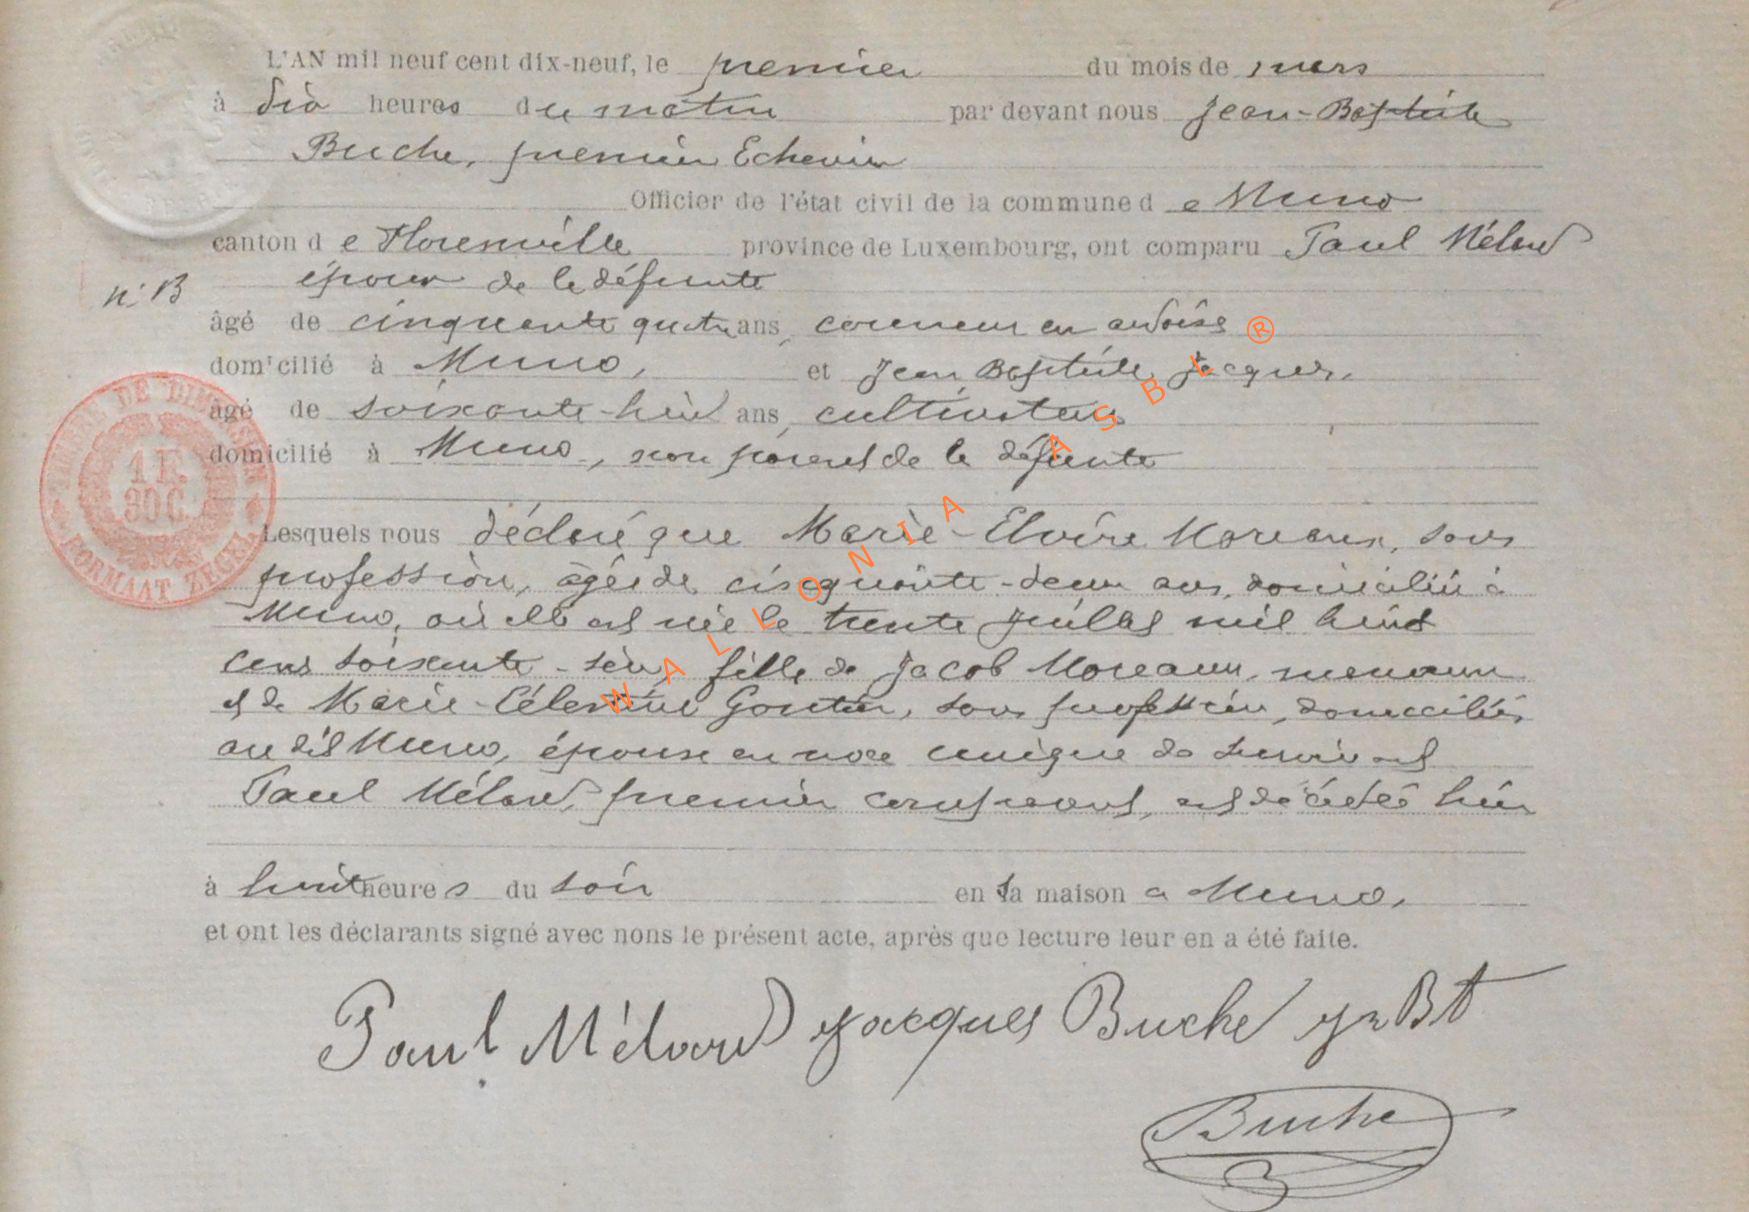 L'AN mil neuf cent dix-neuf, le premier du mois de mars
à dix heures du matin par devant nous Jean-Baptiste
Buche, premier Echevin
Officier de l'état civil de la commune d e Muno
canton d e Florenville province de Luxembourg, ont comparu Paul Mélard
époux de la défunte
n° 13
âgé de cinquante quatre ans, couvreur en ardoises
domicilié à Muno, et Jean Baptiste Jacques,
âgé de soixante-huit ans, cultivateur
domicilié à Muno, non parent de la défunte
Lesquels nous déclaré que Marie-Elvire Moreaux, sans
profession, âgée de cinquante-deux ans, domiciliée à
Muno, où elle est née le trente juillet mil huit
cent soixante-six, fille de Jacob Moreaux, 
et de Marie-Célestine Gontier, sans profession, domiciliés
au dit Muno, épouse en noce unique de survivant
Paul Mélard, premier comparant, est décédée hier
à huit heures du soir en sa maison a Muno,
et ont les déclarants signé avec nous le présent acte, après que lecture leur en a été faite.
Paul Mélard Jacques Buche Jn Bt
Buche
TIMBRE DE DIMENSION
1 F.
30 C.
FORMAAT ZEGEL
WALLONIA ASBL ®